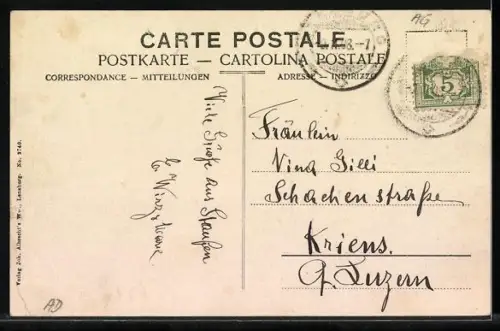 AG
CARTE POSTALE
POSTKARTE — CARTOLINA POSTALE
CORRESPONDANCE — MITTEILUNGEN
ADRESSE — INDIRIZZO
5
Viele Grüße aus Staufen
Fräulein
Nina Gilli
Schachenstraße
Kriens.
Luzern
Verlag Joh. Albrecht's Lenzburg. No.
AD